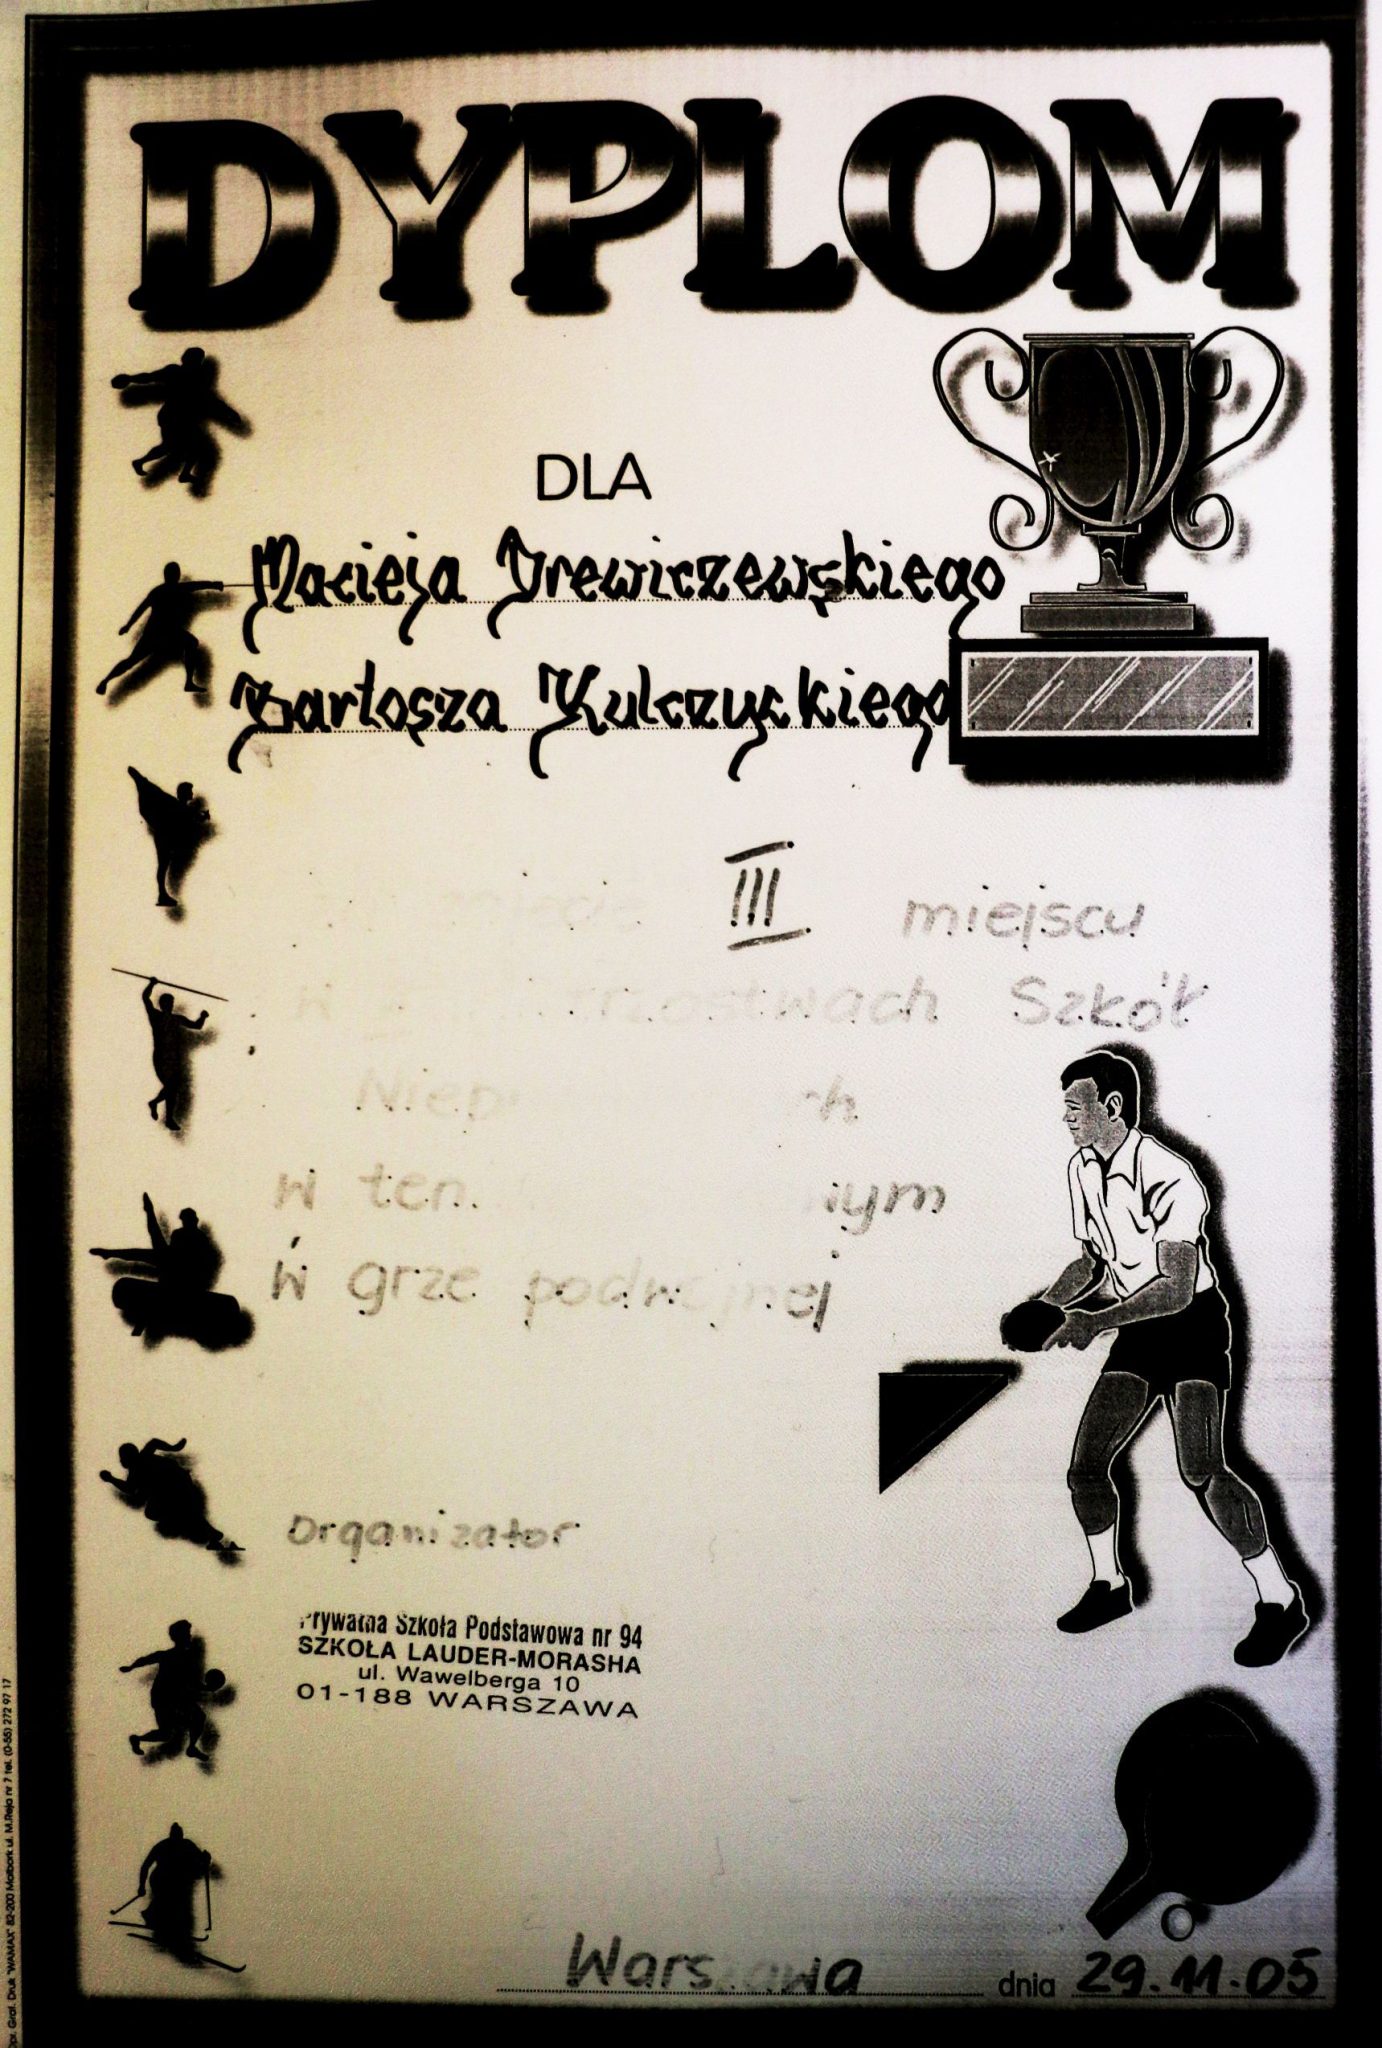 DYPLOM
DLA
Macieja Drewiczewskiego
Bartosza Kulczyckiego
III miejscu
Szkół
w
w grze podwójnej
Organizator
Prywatna Szkoła Podstawowa nr 94
SZKOŁA LAUDER-MORASHA
ul. Wawelberga 10
01-188 WARSZAWA
Warszawa dnia 29.11.05
Graf. Druk "WAMAX" 82-200 Malbork ul. M.Reja nr 7 tel. (0-55) 272 97 17